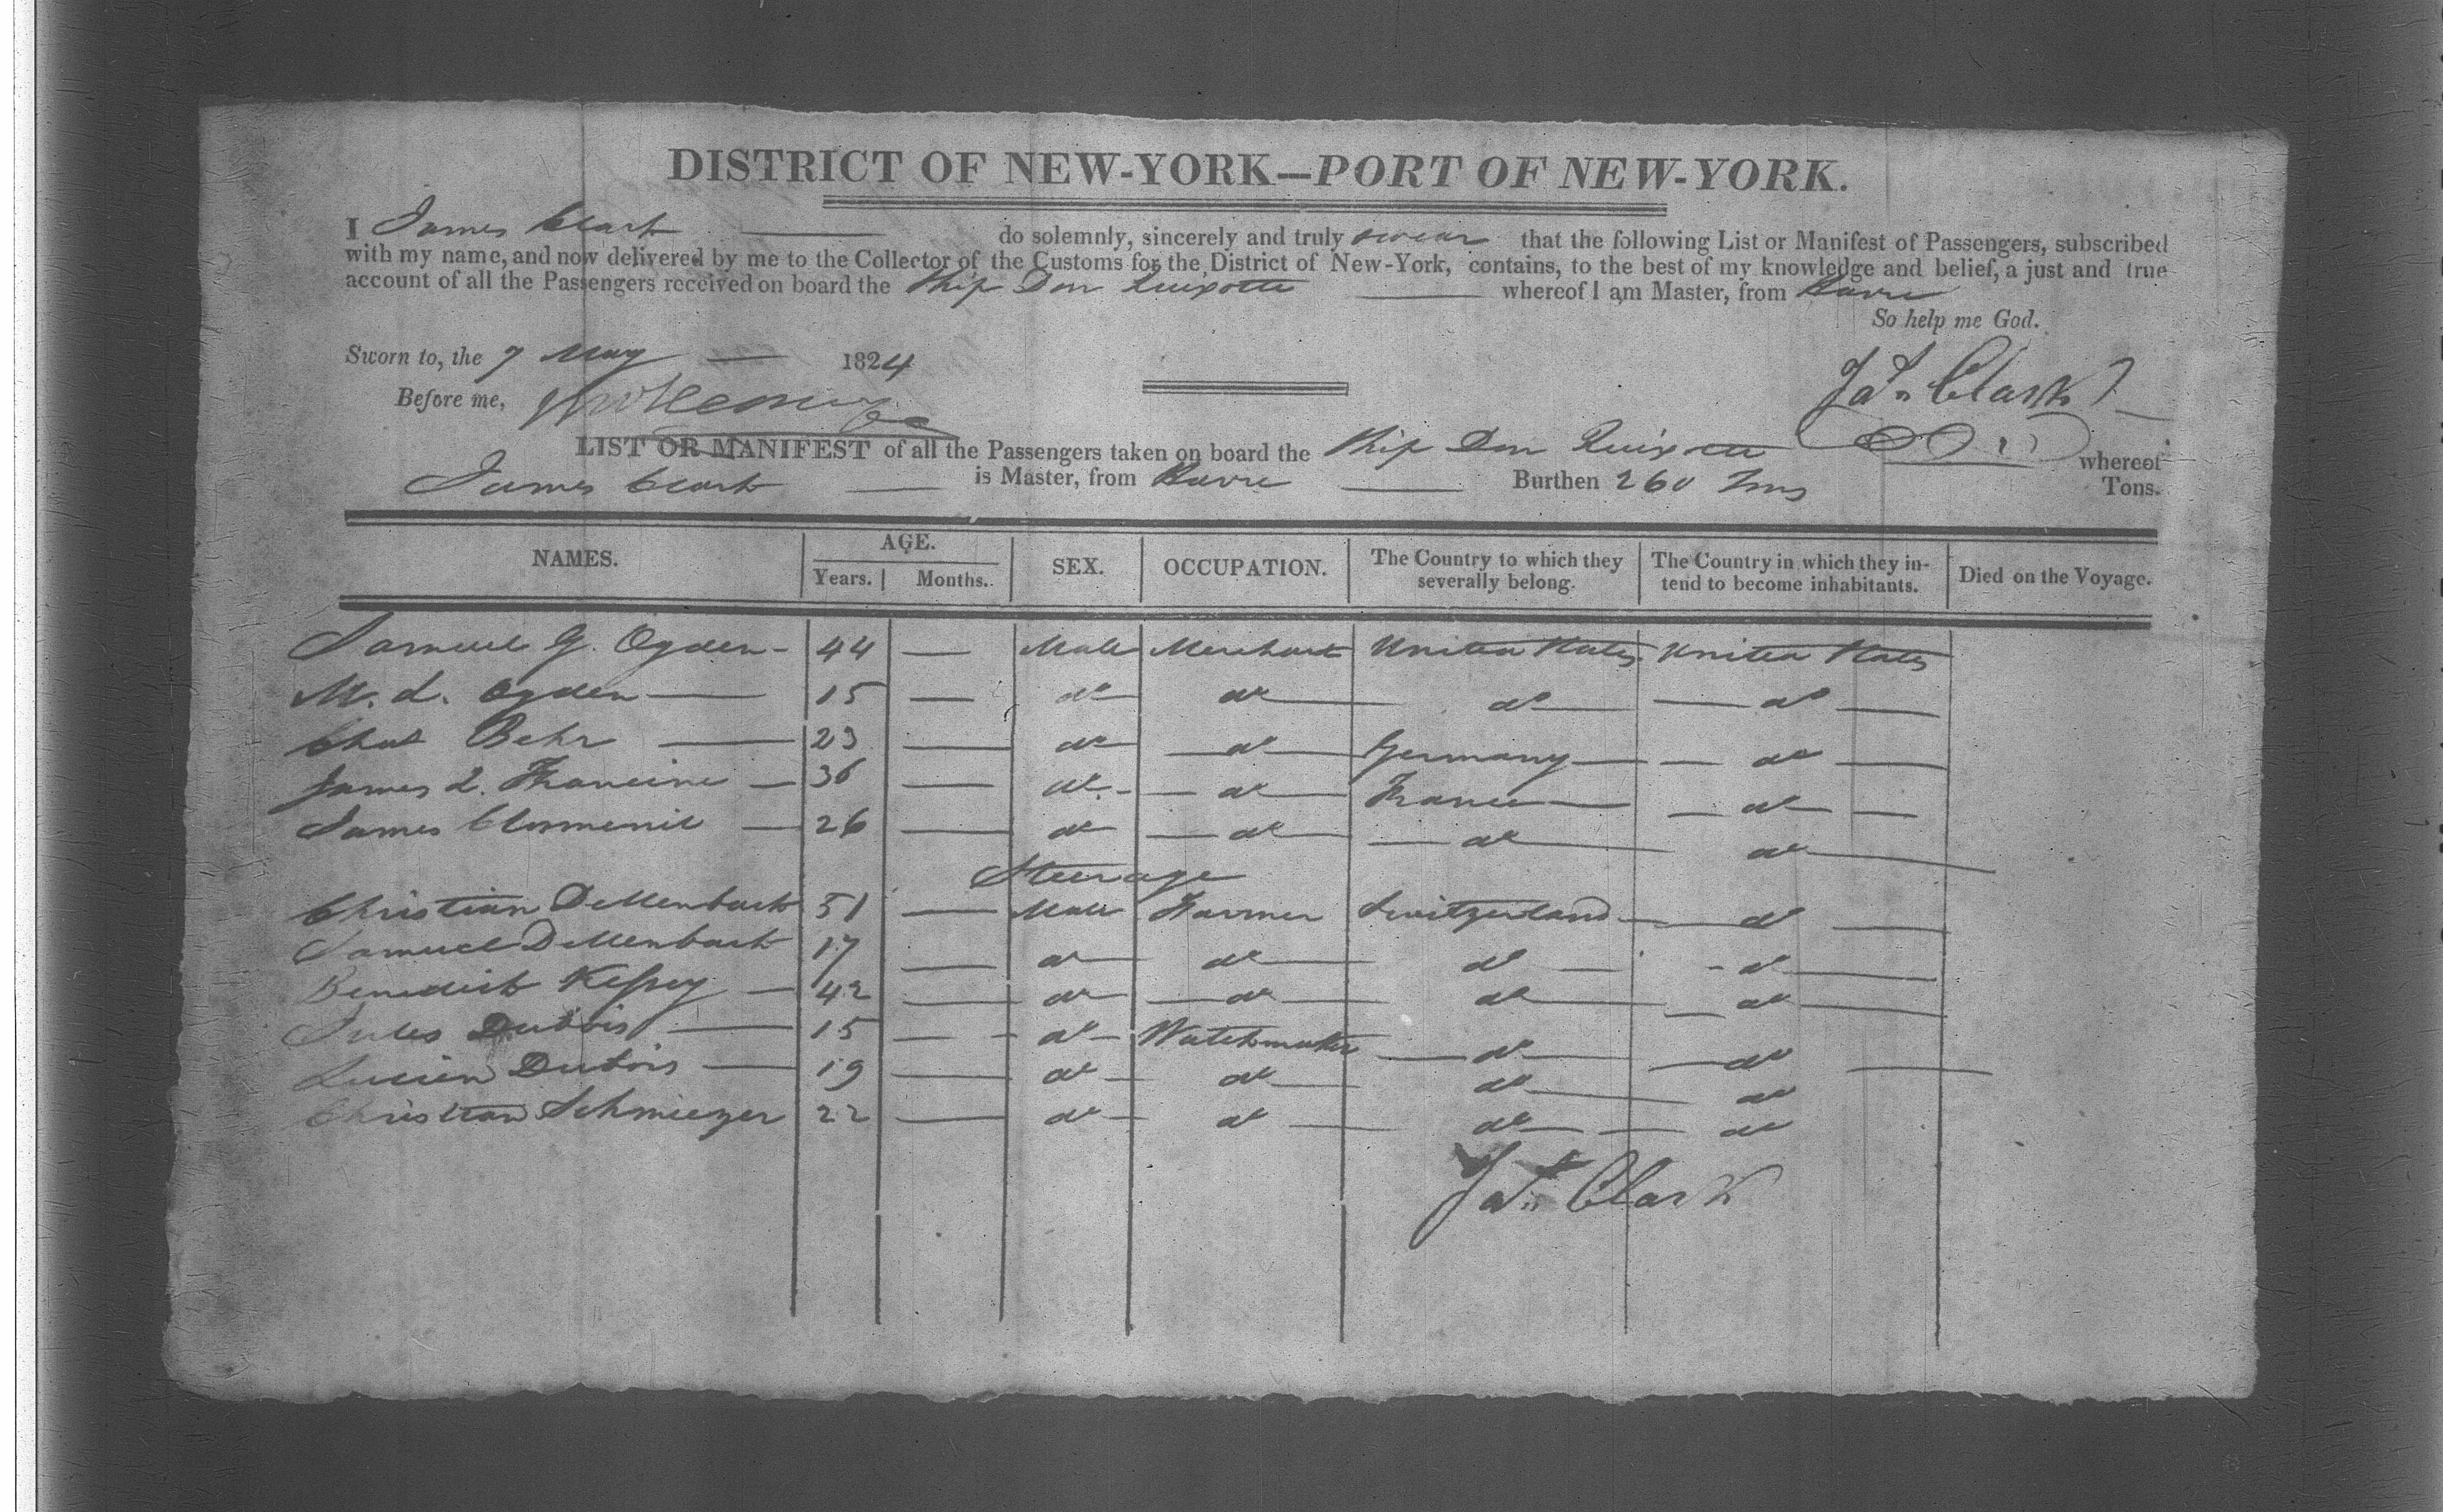 DISTRICT OF NEW-YORK—PORT OF NEW-YORK.
I James Clark do solemnly, sincerely and truly swear that the following List or Manifest of Passengers, subscribed
with my name, and now delivered by me to the Collector of the Customs for the District of New-York, contains, to the best of my knowledge and belief, a just and true
account of all the Passengers received on board the Ship Don Quixotte whereof I am Master, from Havre
So help me God.
Sworn to, the 7 May 1824
Jas Clark
Before me,
LIST OR MANIFEST of all the Passengers taken on board the Ship Don Quixotte whereof
James Clark is Master, from Havre Burthen 260 Tons Tons.
NAMES. AGE. SEX. OCCUPATION. The Country to which they severally belong. The Country in which they intend to become inhabitants. Died on the Voyage.
Years. Months.
Samuel G. Ogden - 44 — Male Merchant United States United States
M. L. Ogden — 15 — do do do do
Chas Behr — 23 — do do Germany do
James L. Francine — 36 — do do France do
James — 26 — do do do do
Steerage
Christian Dellenbach 51 — Male Farmer Switzerland do
Samuel Dellenbach 17 — do do do do
Benedict — 42 — do do do do
Jules Dubois — 15 — do Watchmaker do do
Lucien Dubois — 19 — do do do do
Christian 22 — do do do do
Jas Clark